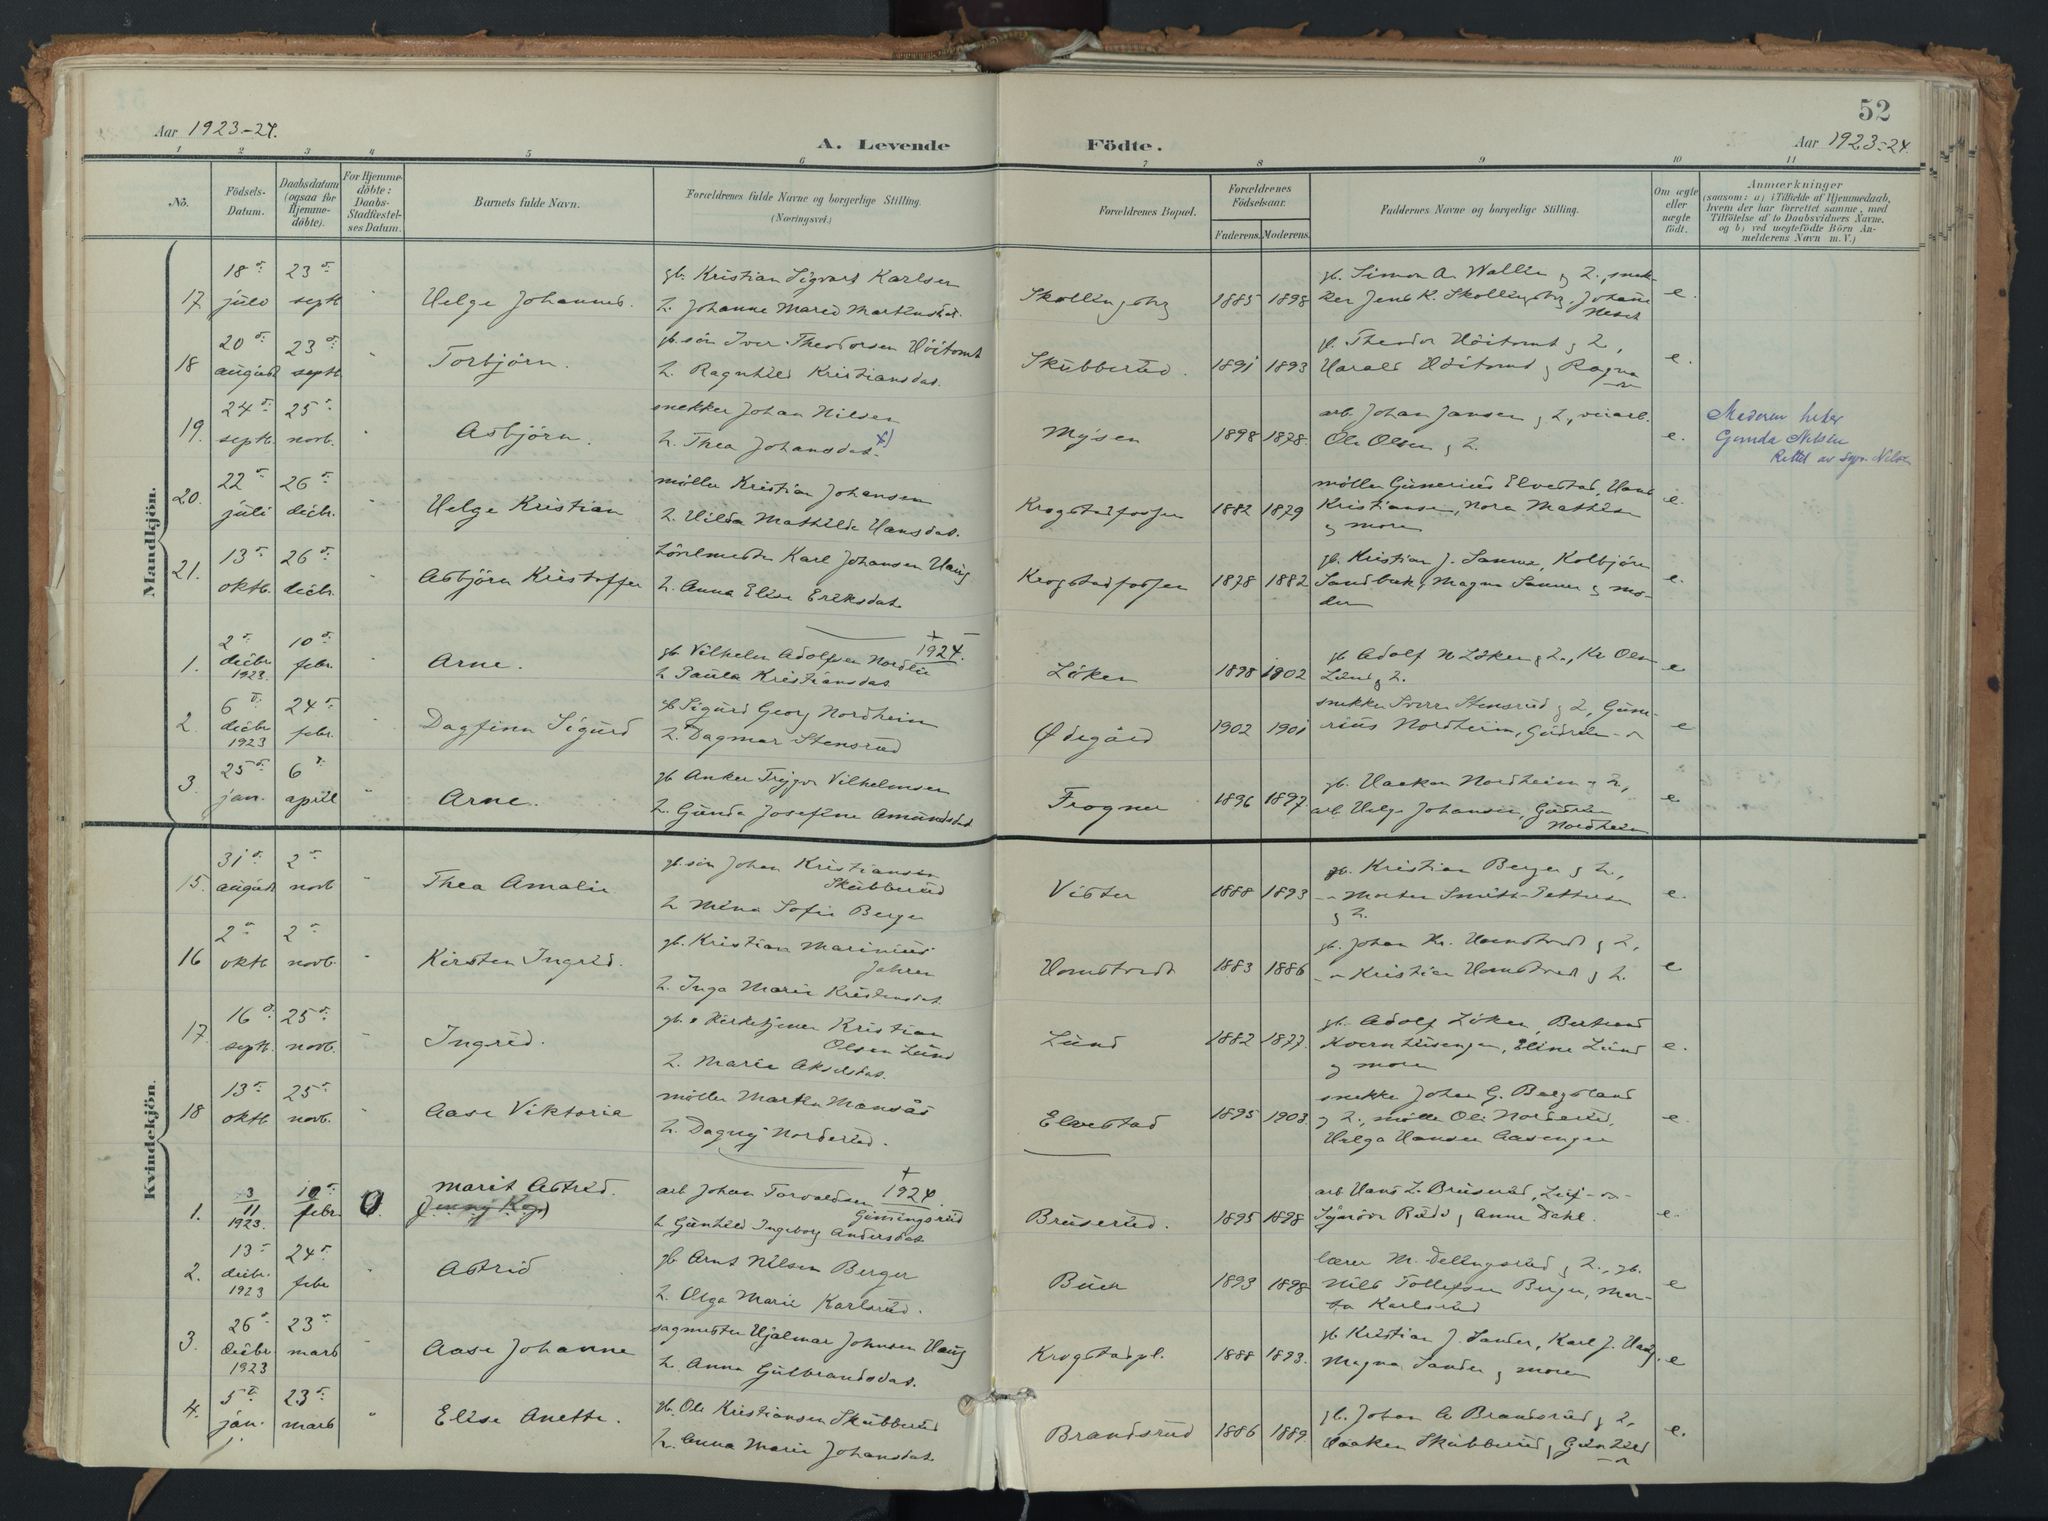 52
Aar 1923-24.
A. Levende Födte.
Aar 1923-24.
1 2 3 4 5 6 7 8 9 10 11
Nö.
Födsels-Datum.
Daabsdatum (ogsaa for Hjemme-döbte).
For Hjemme-döbte: Daabs-Stadfæstel-ses Datum.
Barnets fulde Navn.
Forældrenes fulde Navne og borgerlige Stilling. (Næringsvei.)
Forældrenes Bopæl.
Forældrenes Födselsaar.
Faderens. Moderens.
Faddernes Navne og borgerlige Stilling.
Om ægte eller uægte födt.
Anmærkninger
(saasom: a) i Tilfælde af Hjemmedaab,
hvem der har forrettet samme, med
Tilföielse af to Daabsvidners Navne.
og b) ved uægtefödte Börn An-
melderens Navn m. V.)
Mandkjön.
17 18 juli 23 sept. Helge Johannes. gb. Kristian Sigvart Karlsen
h. Johanne Marie Martinsdat. Skollingsbg 1885 1898 gb. Simon A. Wallin g h., snek-
ker Jens K. Skollingsbg, Johan e.
18 20 august 23 sept. Torbjörn. gb. sön Iver Theodorsen Höitomt
h. Ragnhild Kristiansdat. Skubberud. 1891 1893 gb. Theodor Höitomt g h,
Harald Höitomt g Ragna e.
19. 24 septb. 25 novb. Asbjörn. snekker Johan Nilsen
h. Thea Johansdat. x) Mysen 1898 1878. arb. Johan Jansen g h., veiarb.
Ole Olsen g h. e. Moderen heter
Gunda Nilsen
Rettet av
20. 22 juli 26 decbr. Helge Kristian möller Kristian Johansen
h. Hilda Mathilde Hansdat. Krogstadfossen 1882 1879 möller Gunerius Elvestad, Hans
Kristiansen, Nora Mathisen
g moren e.
21. 13 oktb. 26 decbr. Asbjörn Kristoffer Karl Johansen Haug
h. Anna Elise Eriksdat. Krogstadfossen 1878 1882 gb. Kristian J. Sanner, Kolbjörn
Sandbæk, Magna Sanner g mo-
deren e.
1924.
1. 2 decbr 1923. 10 febr. Arne. gb. Vilhelm Adolfsen Nordlie
h Paula Kristiansdat. Löken 1898 1902 gb Adolf N Löken g h., Kr. Olsen
Lund g h. e
2. 6 decbr 1923 24 febr. Dagfinn Sigurd gb Sigurd Georg Nordheim
h. Dagmar Stensrud Ødegård 1902 1901 snekker Sverre Stensrud g h, Gune-
rius Nordheim, Gudrun e
3. 25 jan. 6 april Arne. gb Anker Trygve Vilhelmsen
h. Gunda Josefine Amundsdat. Frogner 1896 1897. gb. Haakon Nordheim g h.,
arb Helge Johansen, Gudrun
Nordheim e
Kvindekjön.
15. 31 august 2 novb Thea Amalie gb. sön Johan Kristiansen
Skubberud
h Mina Sofie Berger Vister 1888 1893 gb. Kristian Berger g h.,
Morten Smith-Pettersen
g h. e.
16 2 oktb 2 novb. Kirsten Ingrid. gb. Kristian Marinius
Jahren
h. Inga Marie Kristensdat. Homstvedt 1883 1886 gb. Johan Kr. Homstvedt g h,
Kristian Homstvedt g h. e
17. 16 septb. 25 novb. Ingrid. gb. Kirketjener Kristian
Olsen Lund
h. Marie Akselsdat. Lund 1882 1877. gb. Adolf Löken, Bertrand
Kvernhusengen, Eline Lund
g moren e.
18 13 oktb 25 novb. Aase Viktoria möller Martin Monsås
h. Dagny Norderud. Elvestad 1895 1903. snekker Johan G. Bergsland
g h., möller Ole Norderud,
Helga Hansen Aasengen e.
1924.
1. 3/11 1923. 10 febr. 0 Marit Astrid. arb Johan Torvaldsen
Gimingsrud
h Gunhild Ingeborg Andersdat. Bruserud. 1895 1898 arb Hans L. Bruserud, Leif
Synöve Ruud g Anne Dahl. e.
2. 13 decbr. 1923 24 febr Astrid gb Arnt Nilsen Berger
h. Olga Marie Karlsrud. Buen 1893 1898 lærer M. Dellingsrud g h., gb.
Nils Tollefsen Berger, Mar-
ta Karlsrud e
3. 26 decbr 1923 23 mars Aase Johanne sagmester Hjalmar Johnsen Haug
h. Anna Gulbrandsdat. Krogstadpl. 1888 1893. gb Kristian J. Sander, Karl J. Haug.
Magna Sander g moren e
4. 5 jan. 23 mars Elise Anette. gb. Ole Kristiansen Skubberud
h. Anna Marie Johansdat. Brandsrud 1886 1889. gb. Johan A Brandsrud g h,
Haaken Skubberud g Gunhild e.